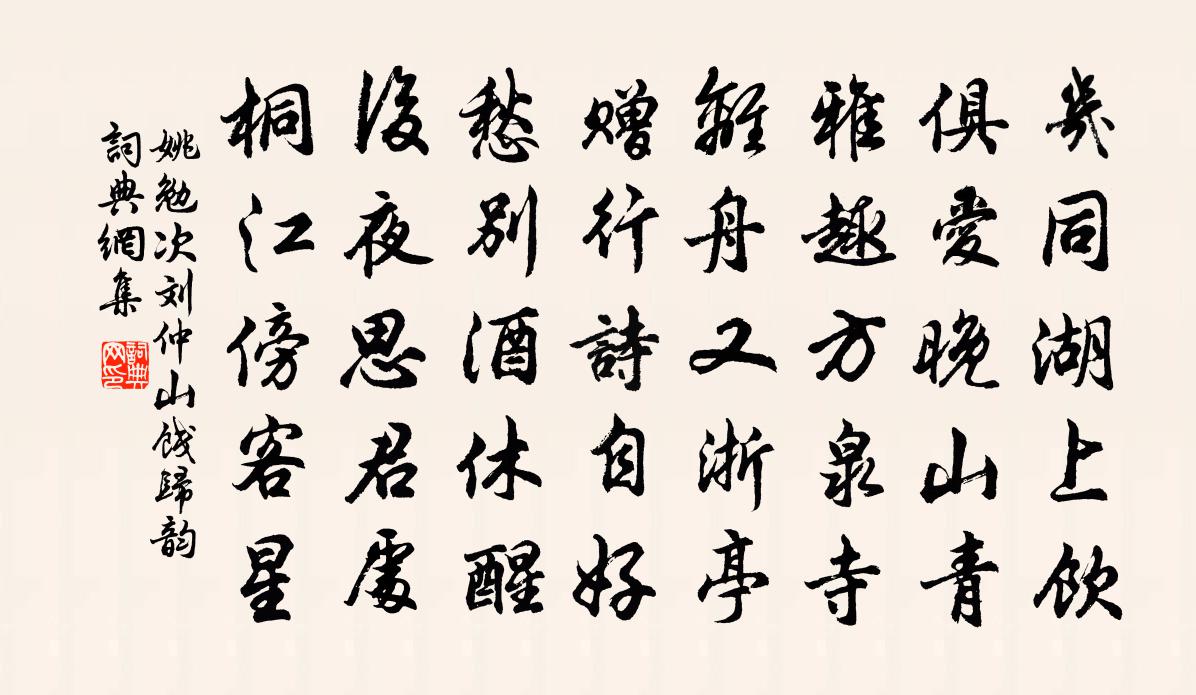 幾同湖上飲
俱愛晚山青
雅趣方泉寺
離舟又浙亭
赠行詩自好
愁别酒休醒
後夜思君處
桐江傍客星
姚勉次刘仲山餞歸韵
詞典網集
詞典网印